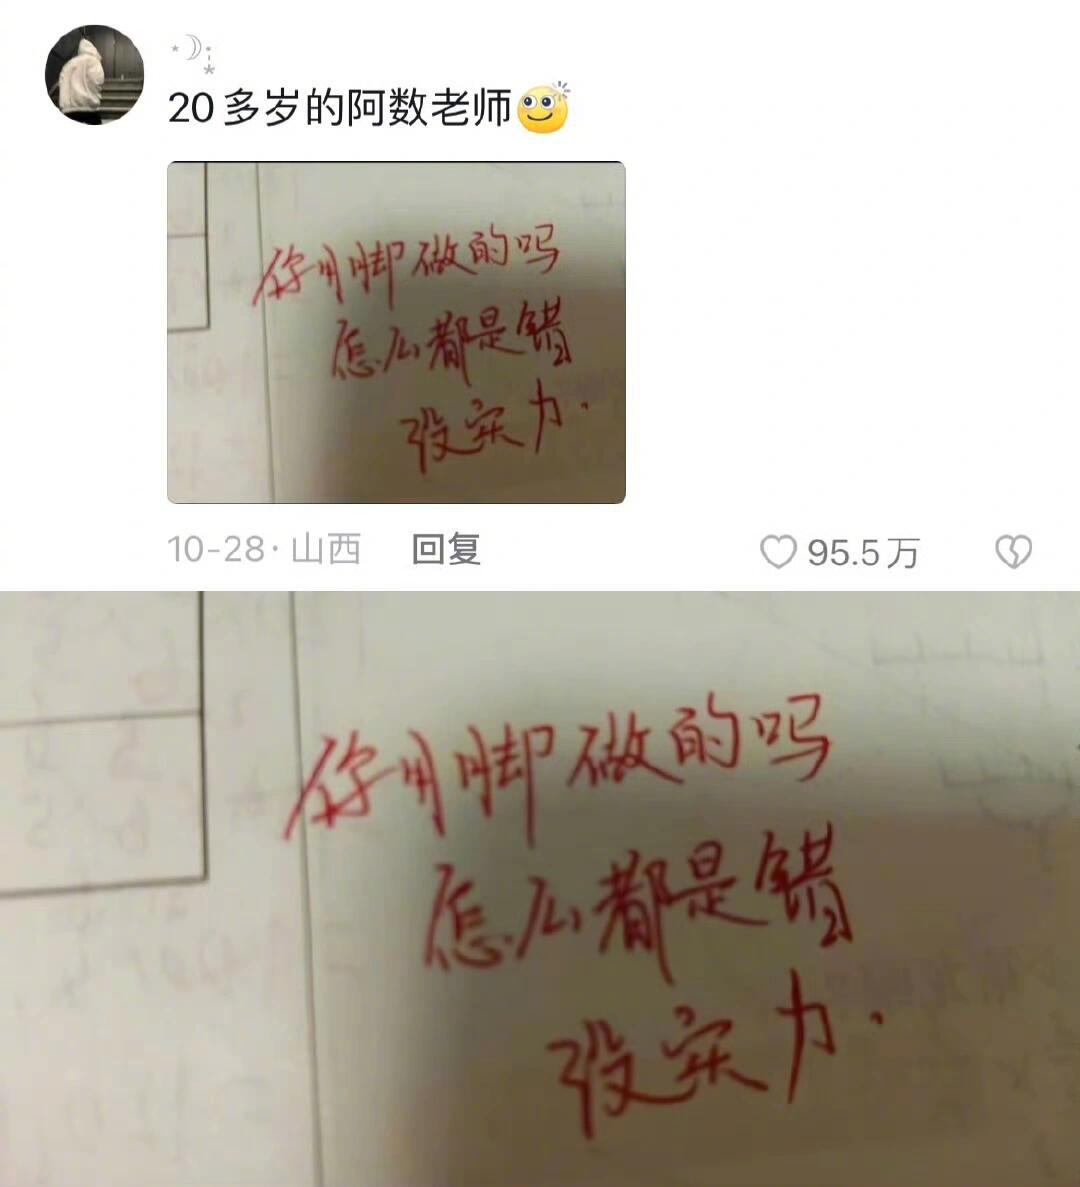 20多岁的阿数老师
你用脚做的吗
怎么都是错
没实力.
10-28·山西 回复 95.5万
你用脚做的吗
怎么都是错
没实力.